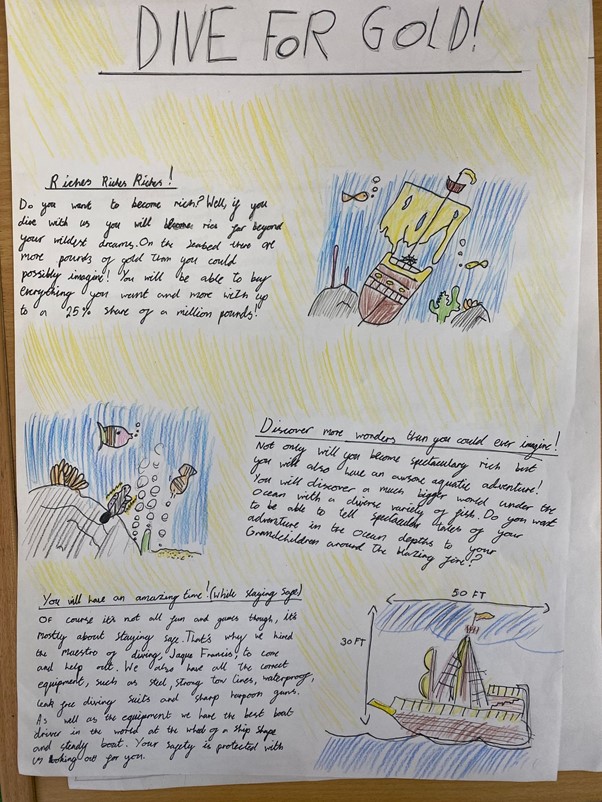 DIVE FOR GOLD!
Riches Riches Riches!
Do you want to become rich? Well, if you
dive with us you will rich far beyond
your wildest dreams. On the seabed there are
more pounds of gold than you could
possibly imagine! You will be able to buy
everything you want and more with up
to a 25% share of a million pounds!
Discover more wonders than you could ever imagine!
Not only will you become spectaculary rich but
you will also have an awsome aquatic adventure!
You will discover a much bigger world under the
Ocean with a diverse variety of fish. Do you want
to be able to tell spectacular tales of your
adventure in the Ocean depths to your
Grandchildren around the blazing fire!?
You will have an amazing time! (while staying safe)
Of course it's not all fun and games though, it's
mostly about staying safe. That's why we hired
the maestro of diving, Jaque Francis, to come
and help out. We also have all the correct
equipment, such as steel, strong tow lines, waterproof,
leak free diving suits and sharp harpoon guns.
As well as the equipment we have the best boat
driver in the world at the wheel of a ship shape
and steady boat. Your safety is protected with
us looking out for you.
50 FT
30 FT